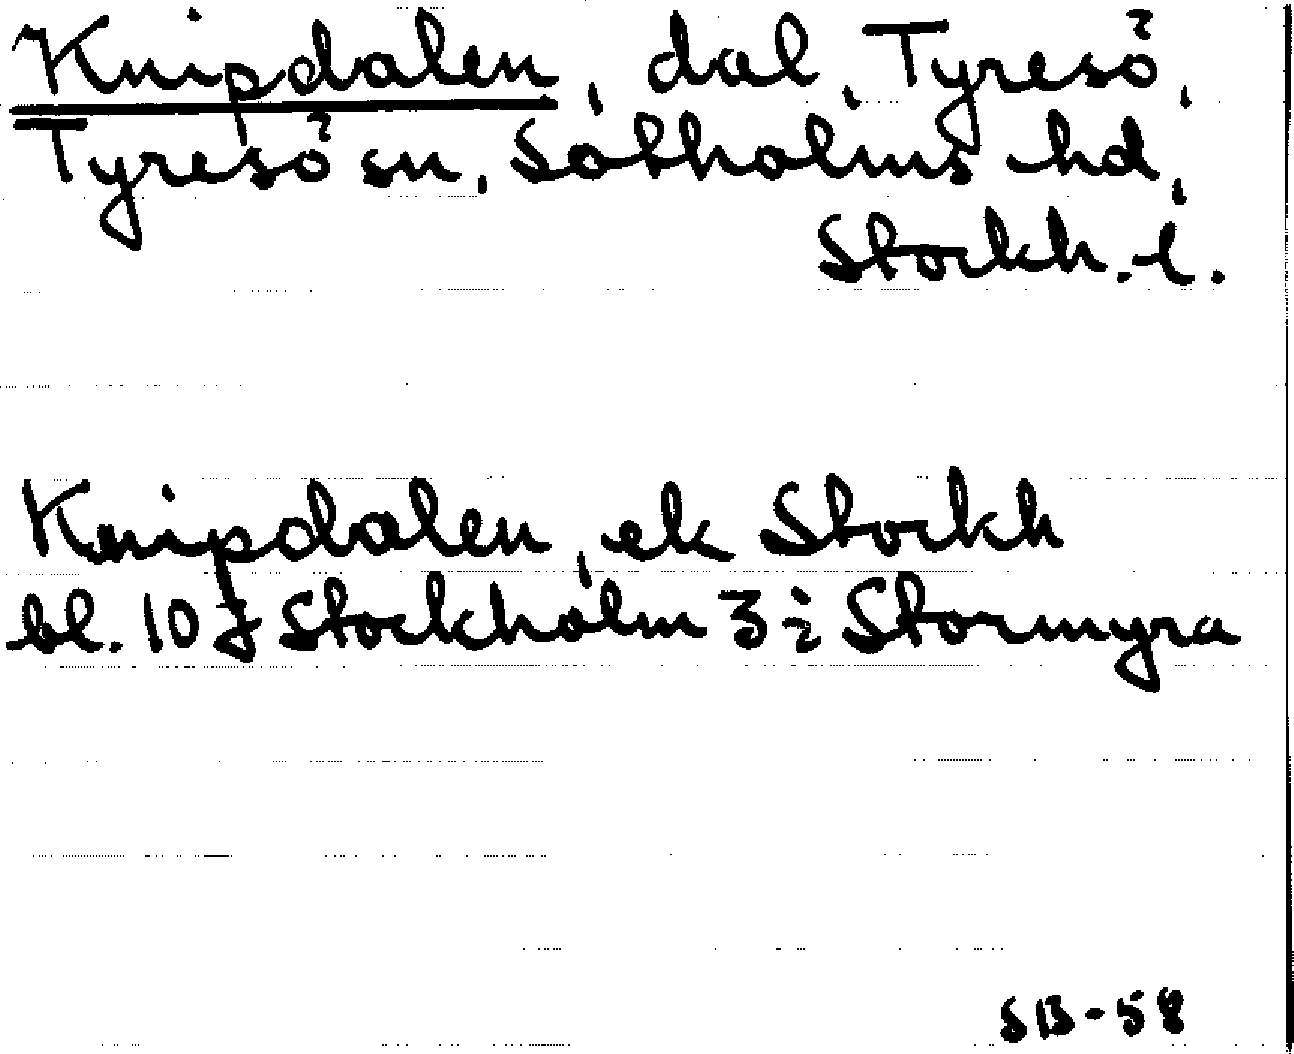 Knipdalen, dal, Tyresö,
Tyresö sn, Sotholms hd,
Stockh. l.
Knipdalen, ek Stockh
bl. 10 J Stockholm 3 i Stormyra
SB-58